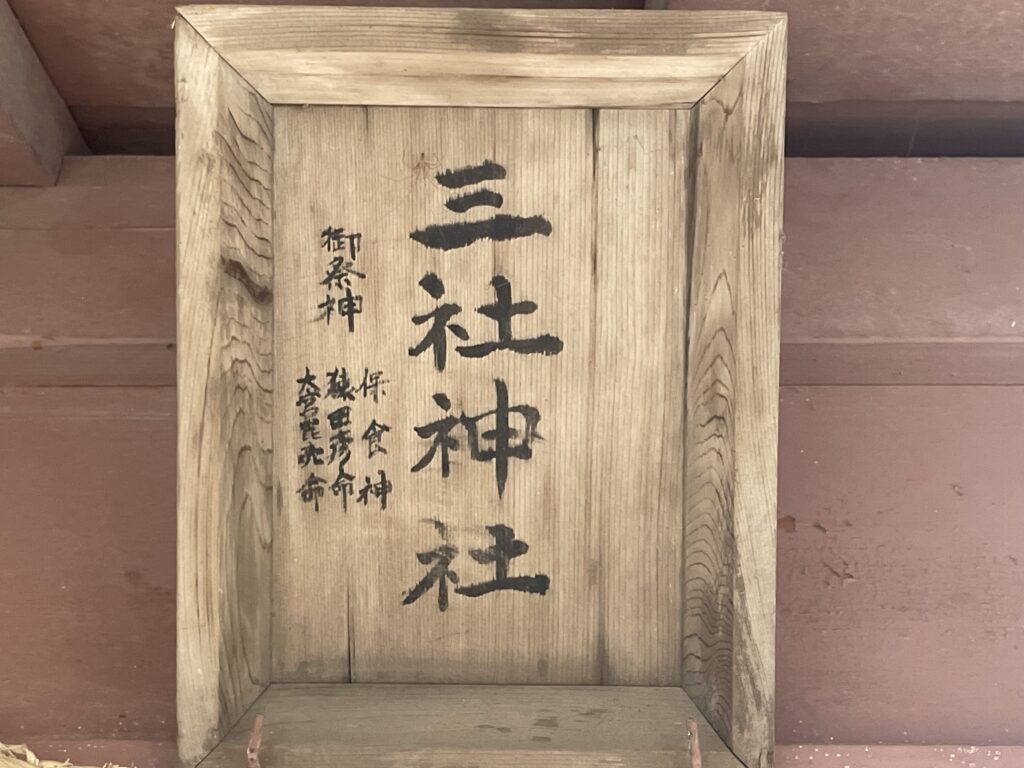 三社神社
御祭神
保食神
猿田彦命
大宮毘売命